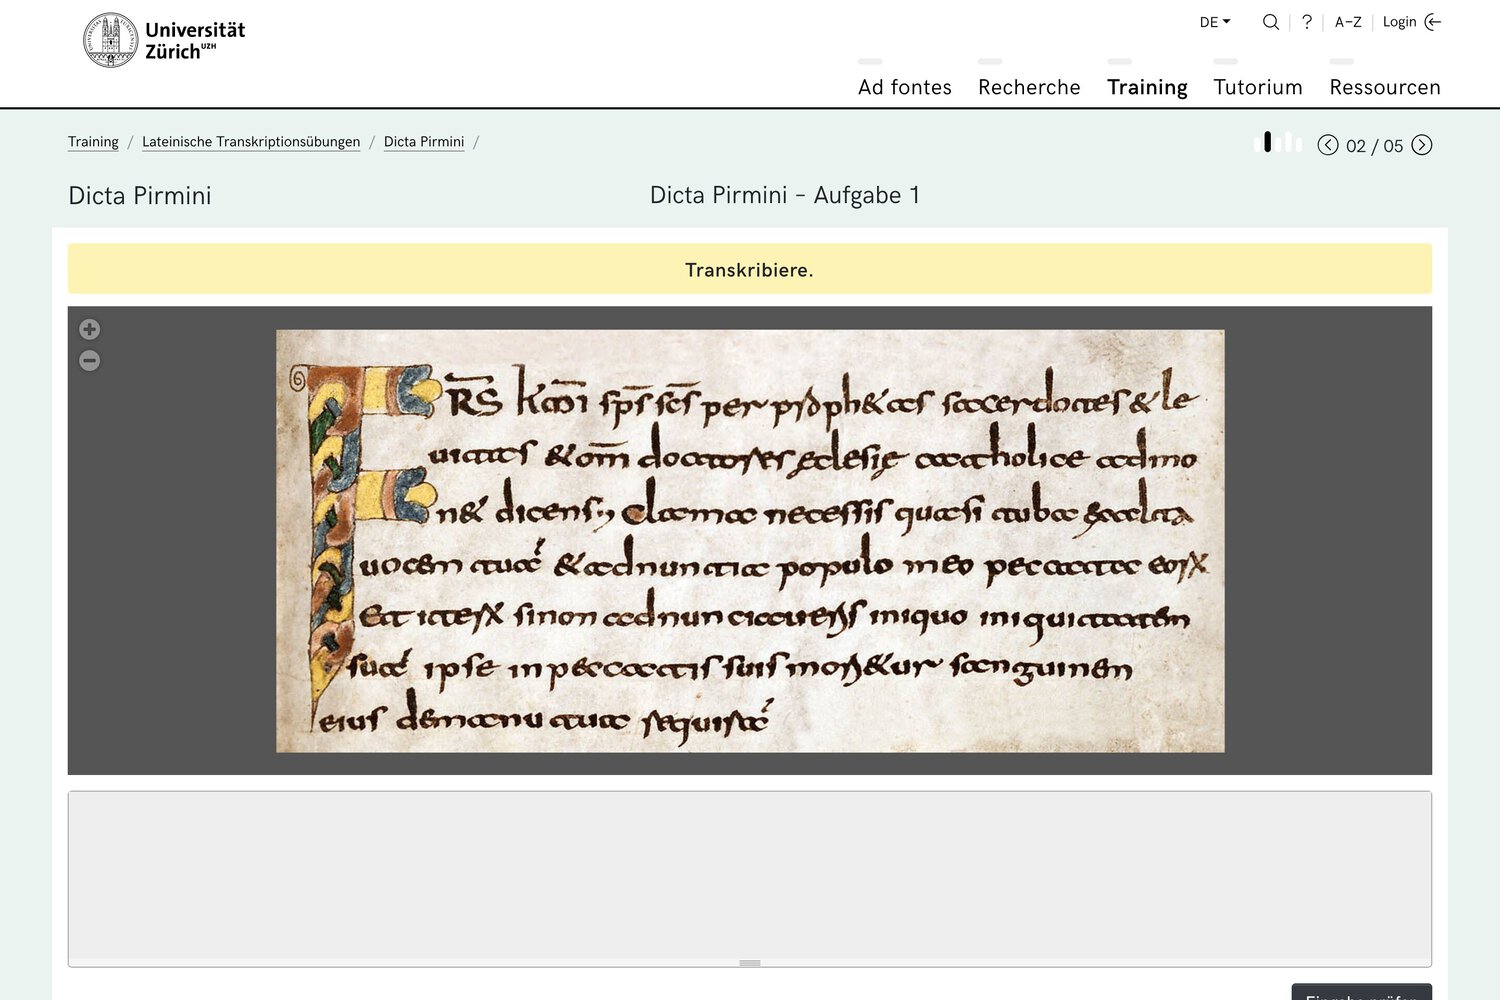 Universität
Zürich UZH
DE
?
A–Z
Login
Ad fontes
Recherche
Training
Tutorium
Ressourcen
Training / Lateinische Transkriptionsübungen / Dicta Pirmini /
02 / 05
Dicta Pirmini
Dicta Pirmini – Aufgabe 1
Transkribiere.
FRS̅ kam̅i sps̅ scs̅ per prophetas sacerdotes & le
uitas & om̅ doctores ęclesię catholice admo
n& dicens; Clama necessis quasi tuba exalta
uocem tua & adnuntia populo meo peccata eorꝝ
Et iterꝝ sinon adnunciauer̅s iniquo iniquitatem
sua ipse inpeccatis suis mor&ur sanguinem
eius demanu tua requira